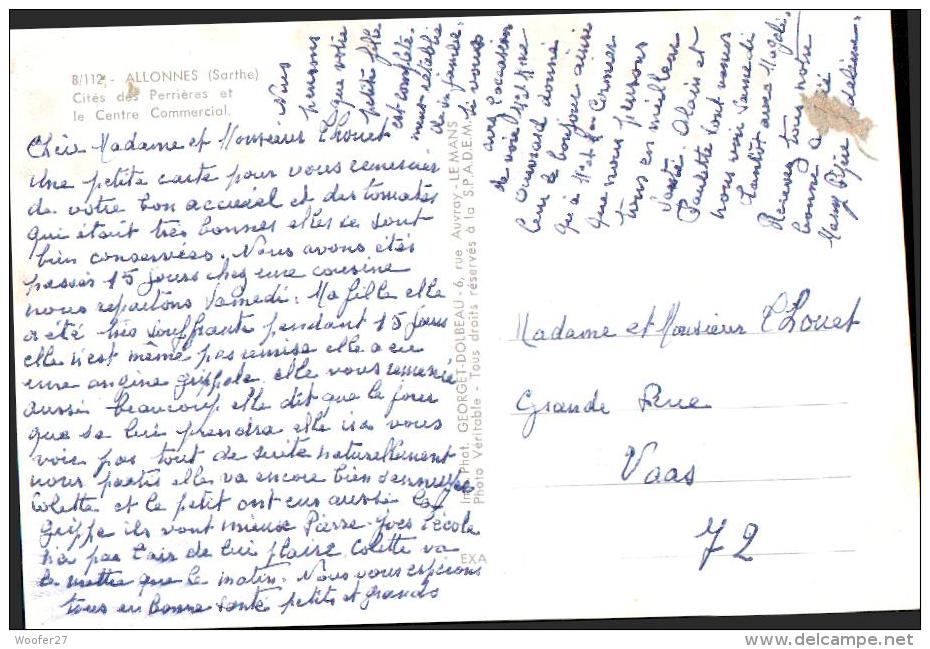 8/112 - ALLONNES (Sarthe)
Cités des Perrières et
le Centre Commercial.
Chère Madame et Monsieur Lhouet
Une petite carte pour vous remercier
de votre bon accueil et des tomates
qui était très bonnes elles se sont
bien conservées. Nous avons étés
passés 15 jours chez une cousine
nous repartons Samedi. Ma fille elle
a été très souffrante pendant 15 jours
elle n'est même pas remise elle a eu
une angine grippale elle vous remercie
aussi beaucoup elle dit que le jour
que sa lui prendra elle ira vous
voir pas tout de suite naturellement
nous partis elle va encore bien s'ennuyer
Colette et le petit ont eus aussi la
grippe ils vont mieux Pierre-Yves l'école
n'a pas l'air de lui plaire Colette va
le mettre que le matin. Nous vous espérons
tous en bonne santé petits et grands
Nous
pensons
que votre
petite fille
est complète-
ment rétablie
de sa jambe.
Si vous
avez l'occasion
de voir Mr et Mme
Dussard donné
leur le bonjour ainsi
qu'à Mr et Mme Cormier
que nous pensons
tous en meilleur
santé. Alain et
Paulette vont venir
nous voir Samedi
tantôt avec Magali.
Recevez tous notre
bonne
Imp. Phot. GEORGET-DOLBEAU - 6, rue Auvray - LE MANS
Photo Véritable - Tous droits réservés à la S.P.A.D.E.M.
EXA
Madame et Monsieur Lhouet
Grande Rue
Vaas
72
Woofer27
www.delcampe.net